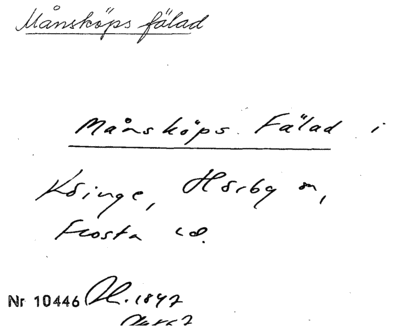 Månsköps fälad
Månsköps Fälad i
Köinge, Hörby sn,
Frosta hd.
Nr 10446 1847